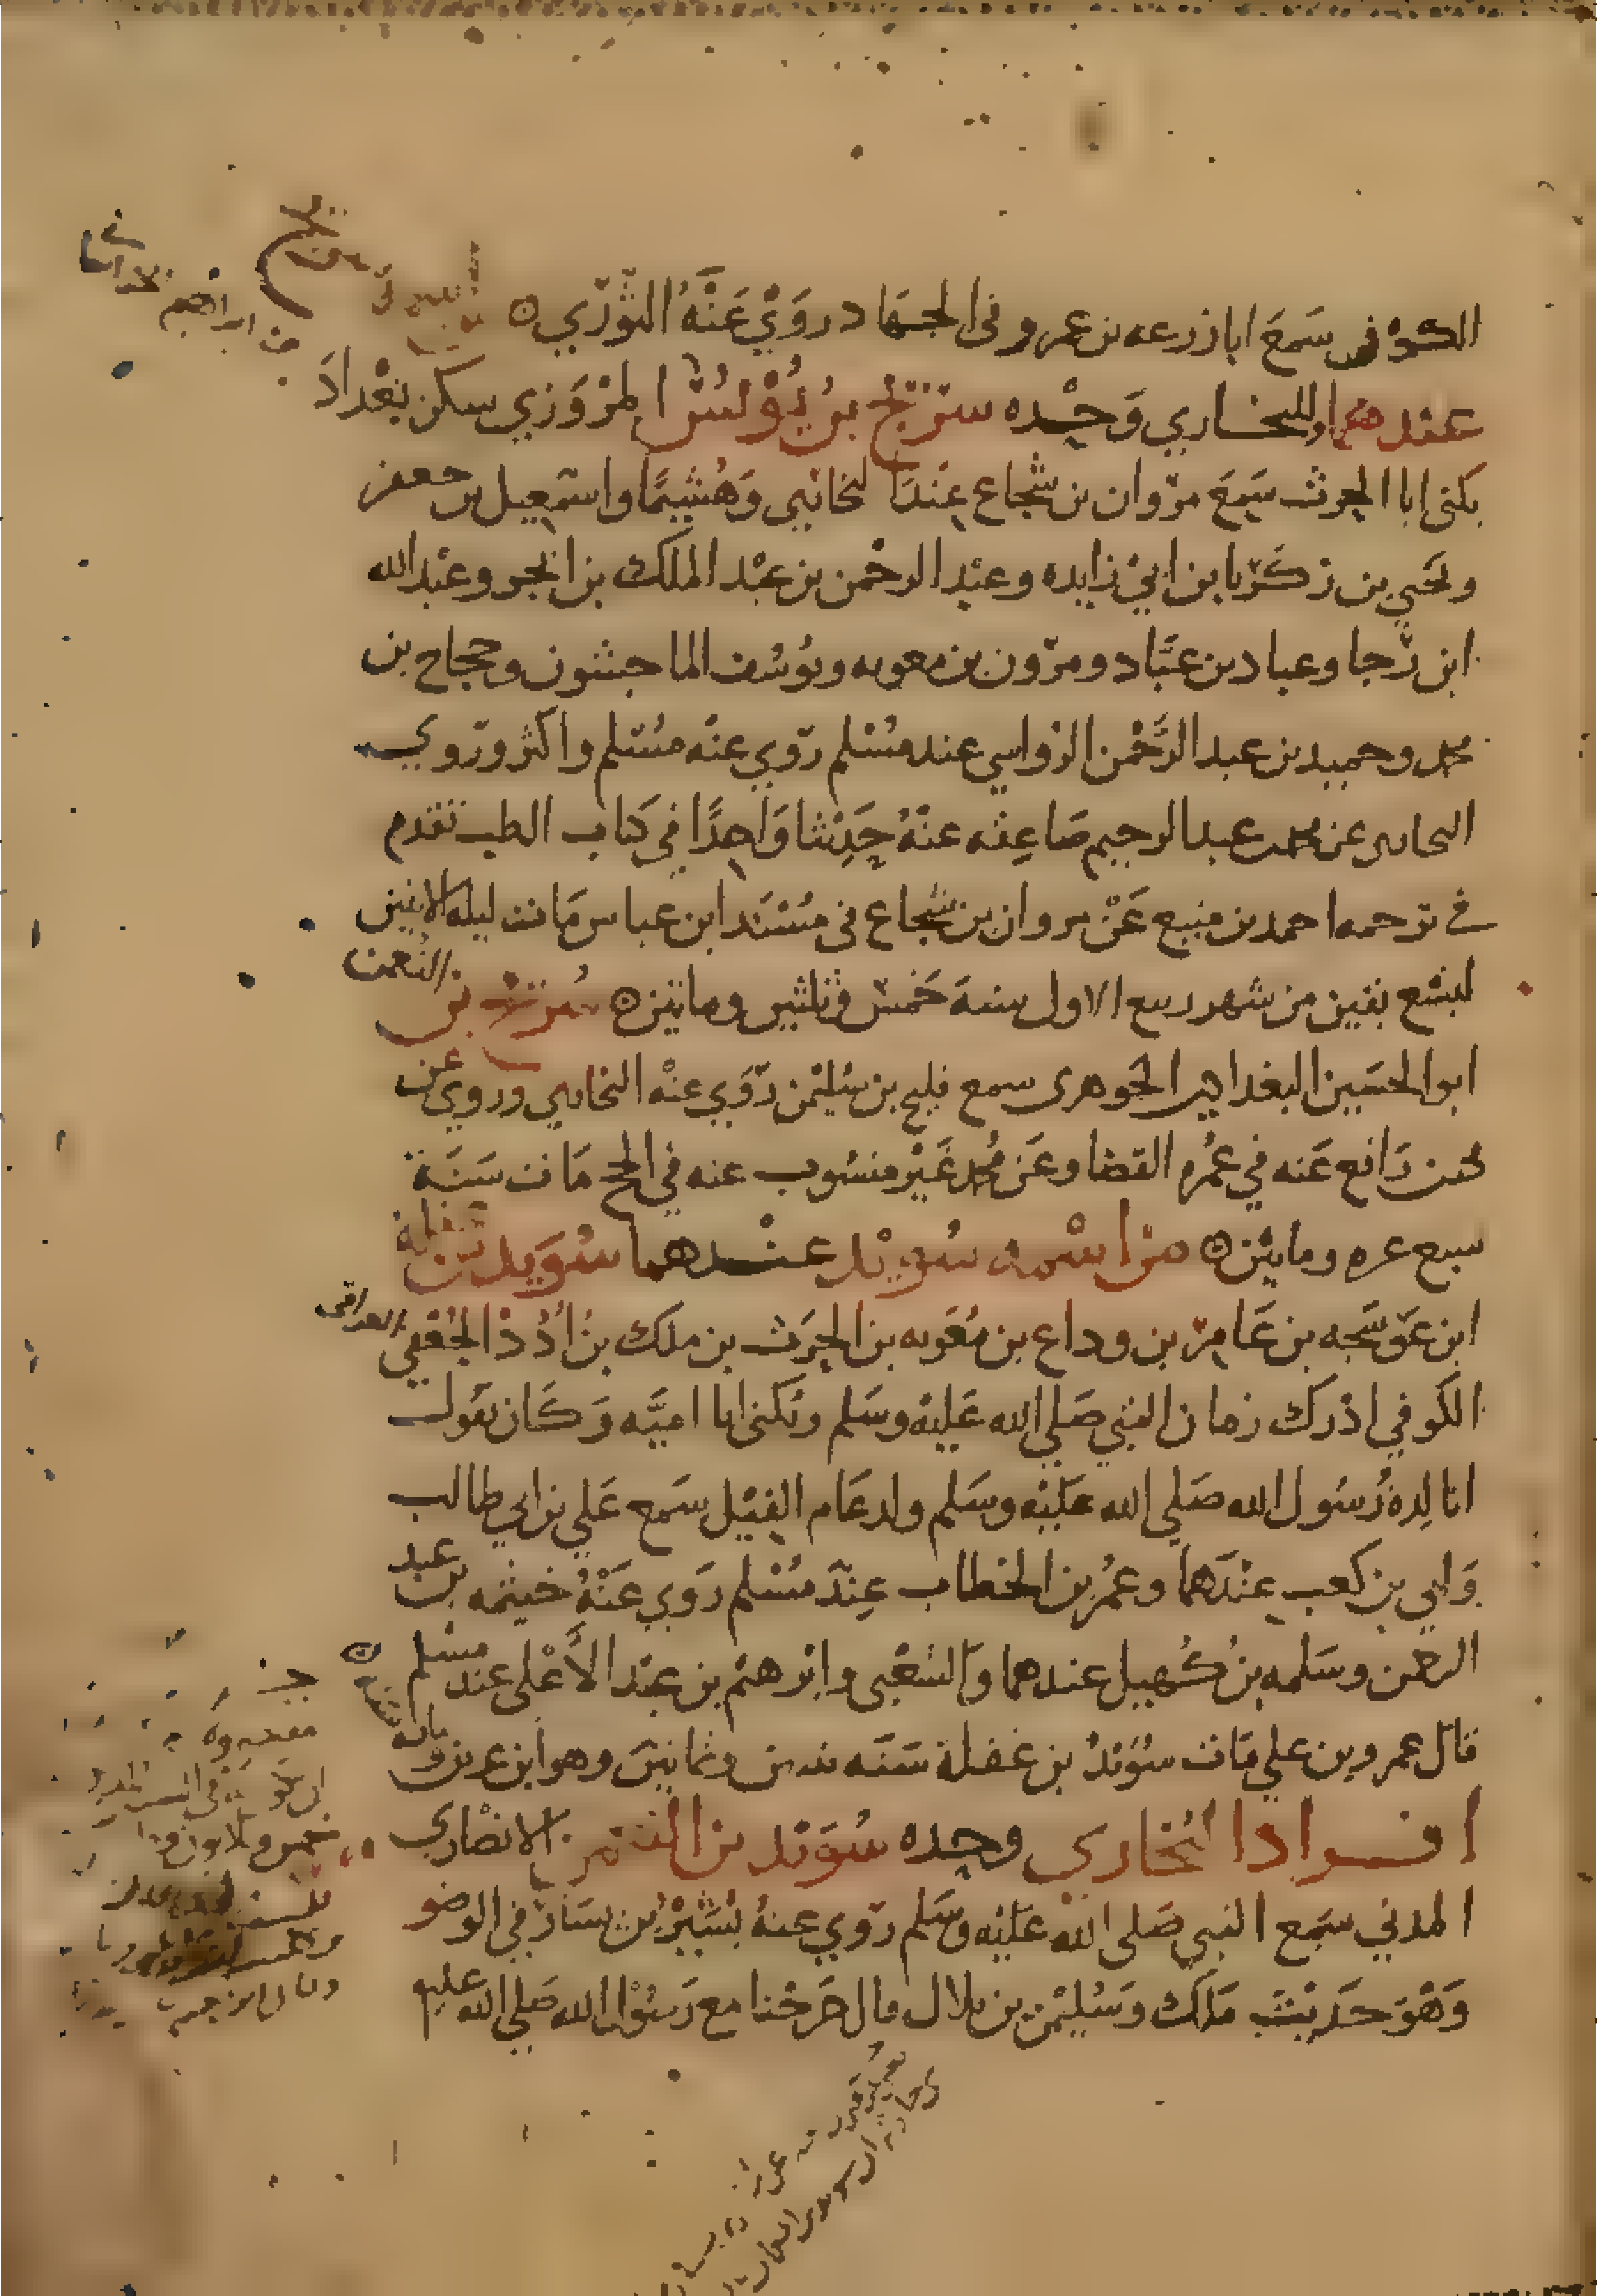 الكوفى سَمعَ ابا زرعه بن عمرو فى الجهاد رَوَيْ عَنْهُ الثَّوْرِي ۞
عندهما وللبخاري وَحْده سريج بن يُوْنُس المَرْوَزي سكن بغْدادَ
يكنى ابا الحرث سَمِعَ مرْوان بن شجاع عِنْدَ البخاري وَهُشيمًا واسمعيل بن جعفر
ويحَيي بن زكَرْيا بن ابيْ زايده وعبْد الرحْمن بن عبْد الملك بن ابجر وعبْد الله
ابن رَّجا وعباد بن عبَّاد ومرْون بن معويه ويوسُف الماجشون وحجاج بن
محمد وحميد بن عبد الرَّحْمن الرواسي عند مسْلم روَي عنْه مسْلم واكثر ورَوي
البخاري عن محمد بن عبد الرحيم صَاعِقه عنْهُ حَدِيثا وَاحِدًا في كتاب الطب تقدم
في ترجمه احمد بن منيع عَنْ مروان بن شجاع فى مسْنَد ابن عباس مَات ليله الاثنين
لسَبْع بقين من شهر ربيع الاول سنة خَمسْ وثلثين وماتين ۞ سُريْج بن النُعمن
ابو الحسَين البغدادي الجَوهرى سمع فليح بن سُليمْن رَوَي عنْه البخاري وروي عن
محمد بن رَافع عَنه في عمْرة القضا وعَن محُمد غَيْر منسُوب عنه في الحج مَات سَنَة
سبع عشره ومايتْن ۞ من اسْمه سُويْد عنْدهما سُوَيد بن غفلة
ابن عَوسَجه بن عَامِر بن وداع بن مُعَويه بن الحرَث بن ملك بن اُدُد الجُعْفي العراقى
الكوفي ادْرَك زمان النبي صَلي الله عَليْه وسَلم ويُكنى ابا اميَّه وَكَان يَقول
انا لِدةُ رُسُول الله صَلي الله عَليْه وسَلم ولد عَام الفيْل سَمع عَلي بن ابي طالب
وَابي بن كعب عِنْدَهما وعمُر بن الخطاب عِنْدَ مسْلم رَوي عَنْهُ خيثمه بن عبد
الرحمن وسَلمه بن كُهيل عندهما والشعْبى وابْرهيْم بن عبْد الأَعْلى عند مسْلم
قال عمرو بن علي مَات سُوَيْدُ بن غفلة سَنَه ثنتين وثمانيَن وهو ابن عشرين ومايه سنه
افراد البخاري وحده سُوَيْد بن النعمن الانصْاري
المدني سَمِع النبي صَلى الله عَليْه وسَلم روَي عنهُ بُشَيْرْ بن يسَارْ في الوضو
وَهْوَ حَديْث مَالك وَسُليْمن بن بلال قال خرَجْنا مع رَسُوْل الله صَلي الله عليه